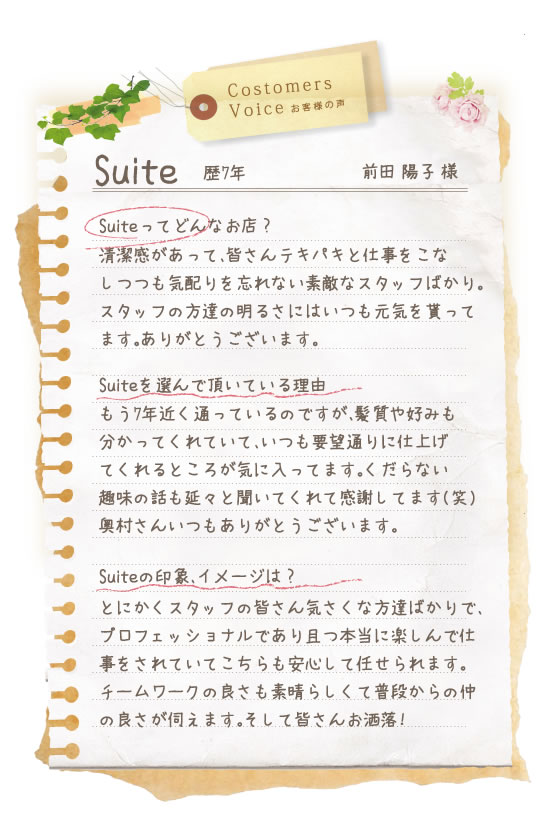 Costomers
Voice お客様の声
Suite 歴7年 前田 陽子 様
Suiteってどんなお店？
清潔感があって、皆さんテキパキと仕事をこな
しつつも気配りを忘れない素敵なスタッフばかり。
スタッフの方達の明るさにはいつも元気を貰って
ます。ありがとうございます。
Suiteを選んで頂いている理由
もう7年近く通っているのですが、髪質や好みも
分かってくれていて、いつも要望通りに仕上げ
てくれるところが気に入ってます。くだらない
趣味の話も延々と聞いてくれて感謝してます(笑)
奥村さんいつもありがとうございます。
Suiteの印象、イメージは？
とにかくスタッフの皆さん気さくな方達ばかりで、
プロフェッショナルであり且つ本当に楽しんで仕
事をされていてこちらも安心して任せられます。
チームワークの良さも素晴らしくて普段からの仲
の良さが伺えます。そして皆さんお洒落！